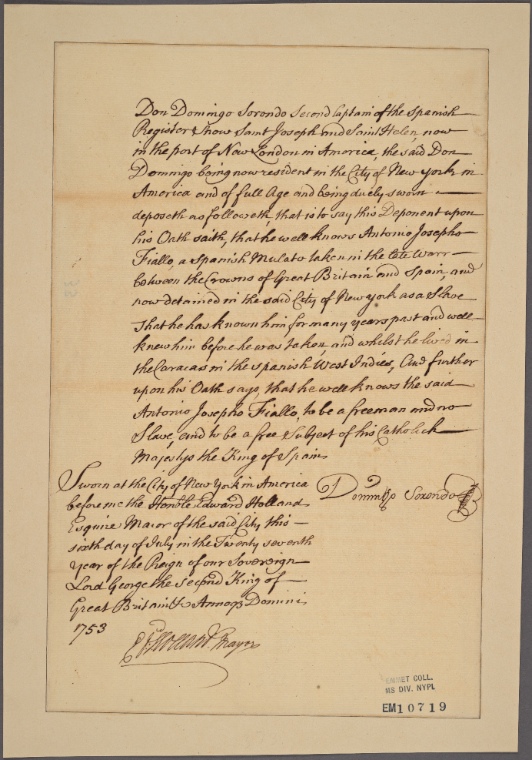 Don Domingo Sorondo Second Captain of the Spanish
Register Snow Saint Joseph and Saint Helen, now
in the port of New London in America, the said Don
Domingo being now resident in the City of New york in
America and of full Age and being duely sworn
deposeth as followeth, that is to say this Deponent upon
his Oath saith, that he well knows Antonio Josepho
Fiallo, a Spanish Mulato taken in the late Warr
between the Crowns of Great Britain and Spain, and
now detained in the said City of New york as a Slave
That he has known him for many years past and well
knew him before he was taken, and whilst he lived in
the Caracas in the Spanish West Indies, And further
upon his Oath says, that he well knows the said
Antonio Josepho Fiallo, to be a freeman and no
Slave, and to be a free Subject of his Catholick
Majestys the King of Spain
Sworn at the City of New York in America
before me the Honble Edward Holland
Esquire Maior of the said City this
sixth day of July in the Twenty seventh
Year of the Reign of our Sovereign
Lord George the second King of
Great Britain &c Annoq Domini
1753
Domingo Sorondo
Ed Holland Mayor
EMMET COLL.
MS DIV. NYPL
EM10719